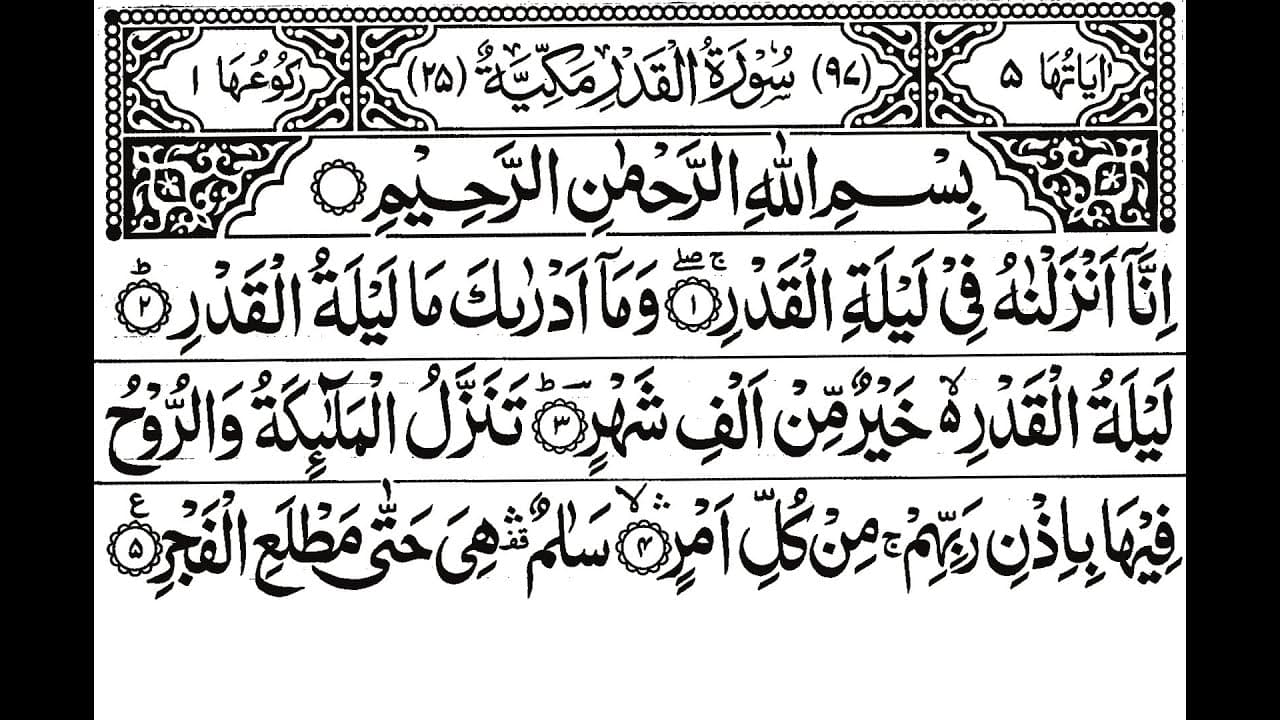 اٰيَاتُهَا ٥ (٩٧) سُوْرَةُ الْقَدْرِ مَكِّيَّةٌ (٢٥) رُكُوْعُهَا ١
بِسْمِ اللّٰهِ الرَّحْمٰنِ الرَّحِيْمِ ۝
اِنَّآ اَنْزَلْنٰهُ فِيْ لَيْلَةِ الْقَدْرِ ۚۖ ۝١ وَمَآ اَدْرٰىكَ مَا لَيْلَةُ الْقَدْرِ ؕ ۝٢
لَيْلَةُ الْقَدْرِ ۙ۬ خَيْرٌ مِّنْ اَلْفِ شَهْرٍ ؕ ۝٣ تَنَزَّلُ الْمَلٰٓئِكَةُ وَالرُّوْحُ
فِيْهَا بِاِذْنِ رَبِّهِمْ ۚ مِنْ كُلِّ اَمْرٍ ۛۙ ۝٤ سَلٰمٌ ۛ قف هِيَ حَتّٰى مَطْلَعِ الْفَجْرِ ۝٥ ع